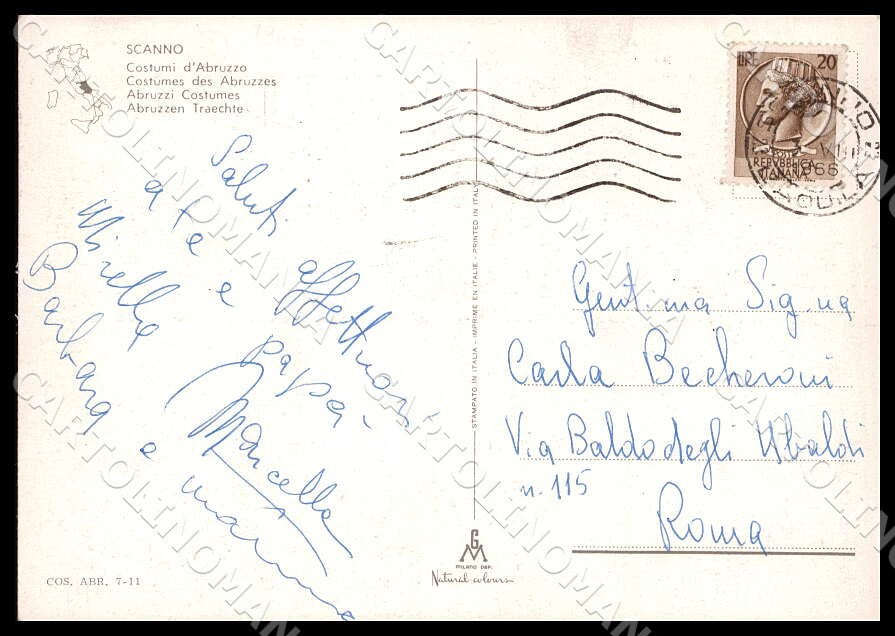 SCANNO
Costumi d'Abruzzo
Costumes des Abruzzes
Abruzzi Costumes
Abruzzen Traechte
LIRE 20
REPVBBLICA
ITALIANA
1966
Saluti affettuosi
a te e papà -
Mirella Marcella
Barbara e mamma
STAMPATO IN ITALIA - IMPRIME EN ITALIE - PRINTED IN ITALY
Gent.ma Sig.na
Carla Becheroni
Via Baldo degli Ubaldi
n. 115
Roma
GM
MILANO DEP.
Natural colours
COS. ABR. 7-11
CARTOLINOMANIA